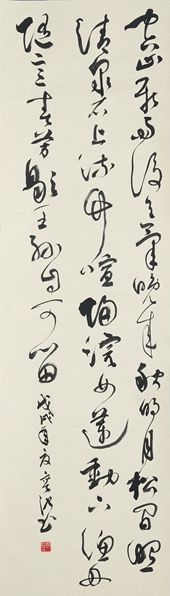 空山新雨後天氣晚來秋明月松間照
清泉石上流竹喧歸浣女蓮動下漁舟
随意春芳歇王孫自可留 戊戌年夏